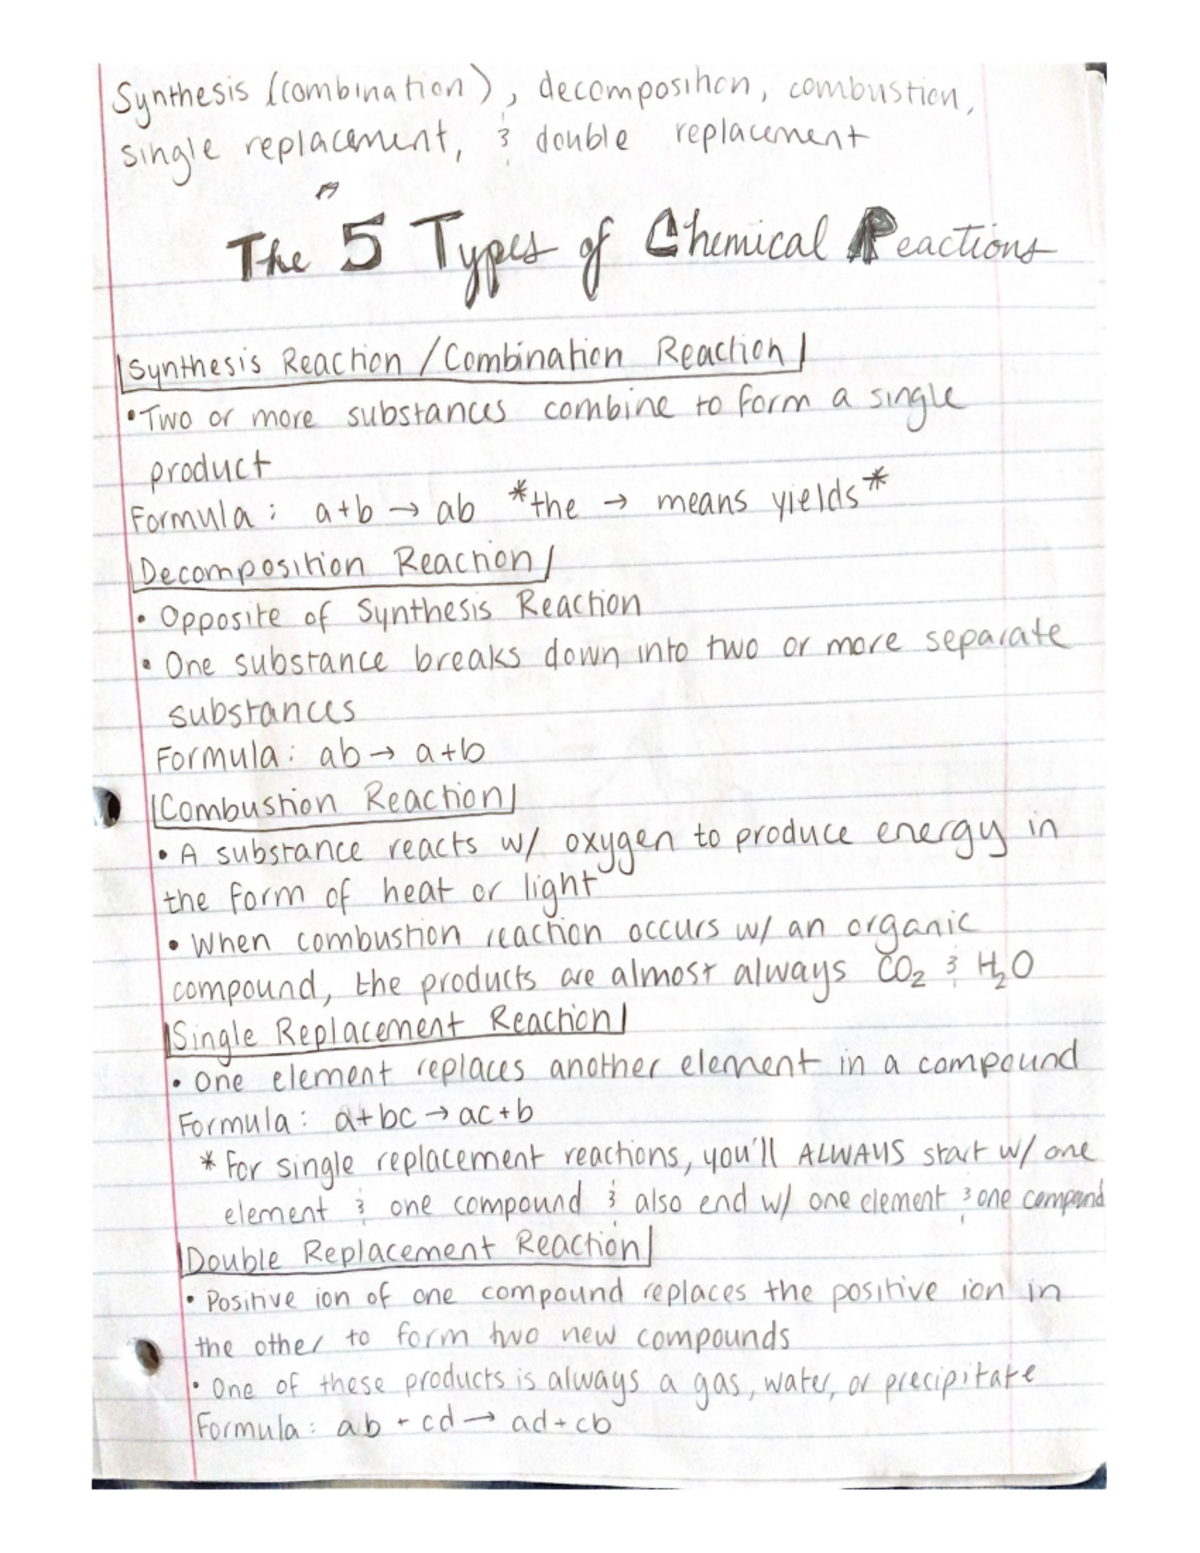 Synthesis (combination), decomposition, combustion,
single replacement, & double replacement
The 5 Types of Chemical Reactions
Synthesis Reaction / Combination Reaction
• Two or more substances combine to form a single
product
Formula: a+b → ab *the → means yields*
Decomposition Reaction
• Opposite of Synthesis Reaction
• One substance breaks down into two or more separate
substances
Formula: ab → a+b
Combustion Reaction
• A substance reacts w/ oxygen to produce energy in
the form of heat or light
• When combustion reaction occurs w/ an organic
compound, the products are almost always CO₂ & H₂O
Single Replacement Reaction
• One element replaces another element in a compound
Formula: a+bc → ac+b
* For single replacement reactions, you'll ALWAYS start w/ one
element & one compound & also end w/ one element & one compound
Double Replacement Reaction
• Positive ion of one compound replaces the positive ion in
the other to form two new compounds
• One of these products is always a gas, water, or precipitate
Formula: ab + cd → ad+cb